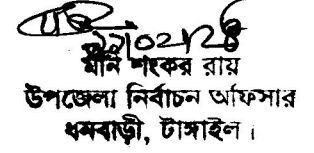 মনি শংকর রায়
উপজেলা নির্বাচন অফিসার
ধনবাড়ী, টাঙ্গাইল।